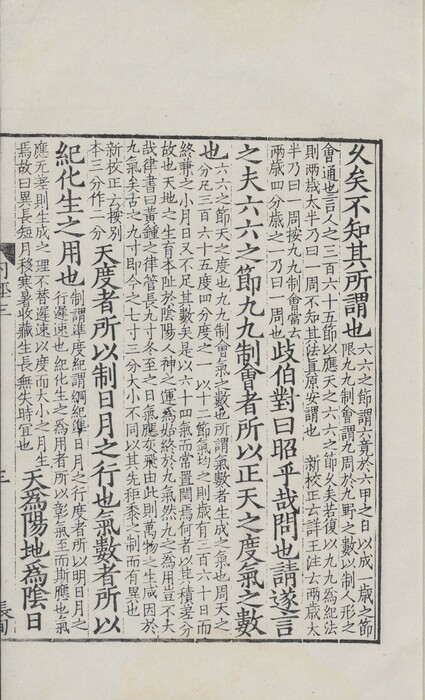 久矣不知其所謂也
六六之節謂六竟於六甲之日以成一歲之節
限九九制會謂九周於九野之數以制人形之
會通也言人之三百六十五節以應天之六六之節久矣若復以九九為紀法
則兩歲太半乃曰一周不知其法真原安謂也 新校正云詳王注云兩歲太
半乃曰一周按九九制會當云
兩歲四分歲之一乃曰一周也
歧伯對曰昭乎哉問也請遂言
之夫六六之節九九制會者所以正天之度氣之數
也
六六之節天之度也九九制會氣之數也所謂氣數者生成之氣也周天之
分凡三百六十五度四分度之一以十二節氣均之則歲有三百六十日而
終兼之小月日又不足其數矣是以六十四氣而常置閏焉何者以其積差分
故也天地之生育本阯於陰陽人神之運為始終於九氣然九之為用豈不大
哉律書曰黃鍾之律管長九寸冬至之日氣應灰飛由此則萬物之生咸因於
九氣矣古之九寸即今之七寸三分大小不同以其先秬黍之制而有異也
新校正云按別
本三分作二分
天度者所以制日月之行也氣數者所以
紀化生之用也
制謂準度紀謂綱紀準日月之行度者所以明日月之
行遲速也紀化生之為用者所以彰氣至而斯應也氣
應无差則生成之理不替遲速以度而大小之月生
焉故曰異長短月移寒暑收藏生長無失時宜也
天為陽地為陰日
三